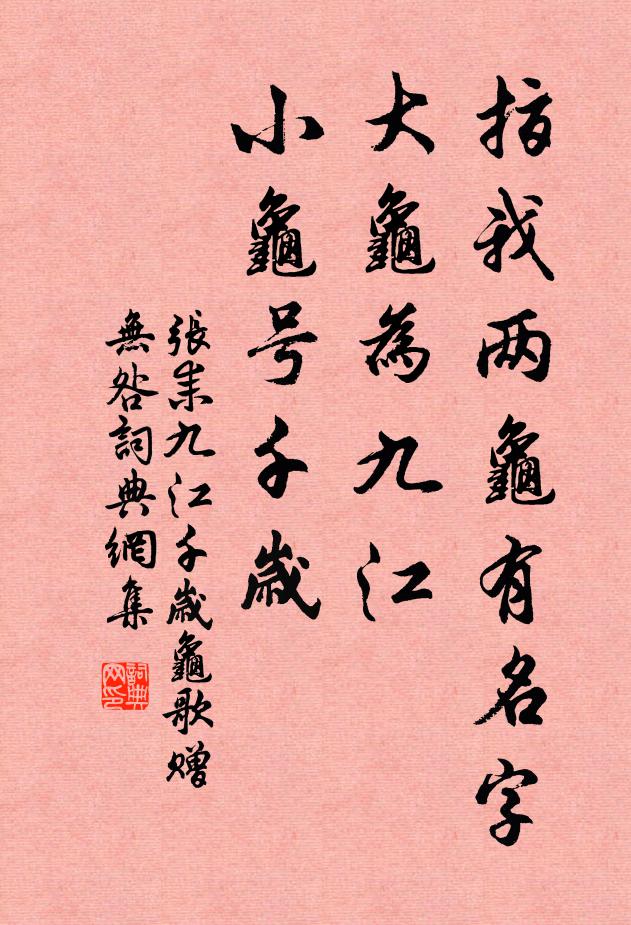 指我两龜有名字
大龜為九江
小龜号千歲
張耒九江千歲龜歌贈
無咎詞典網集
詞典网印